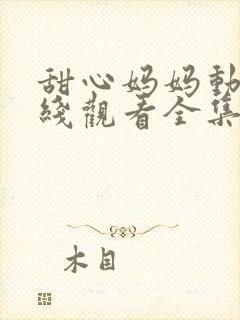 甜心妈妈動
綫觀看全集
木目